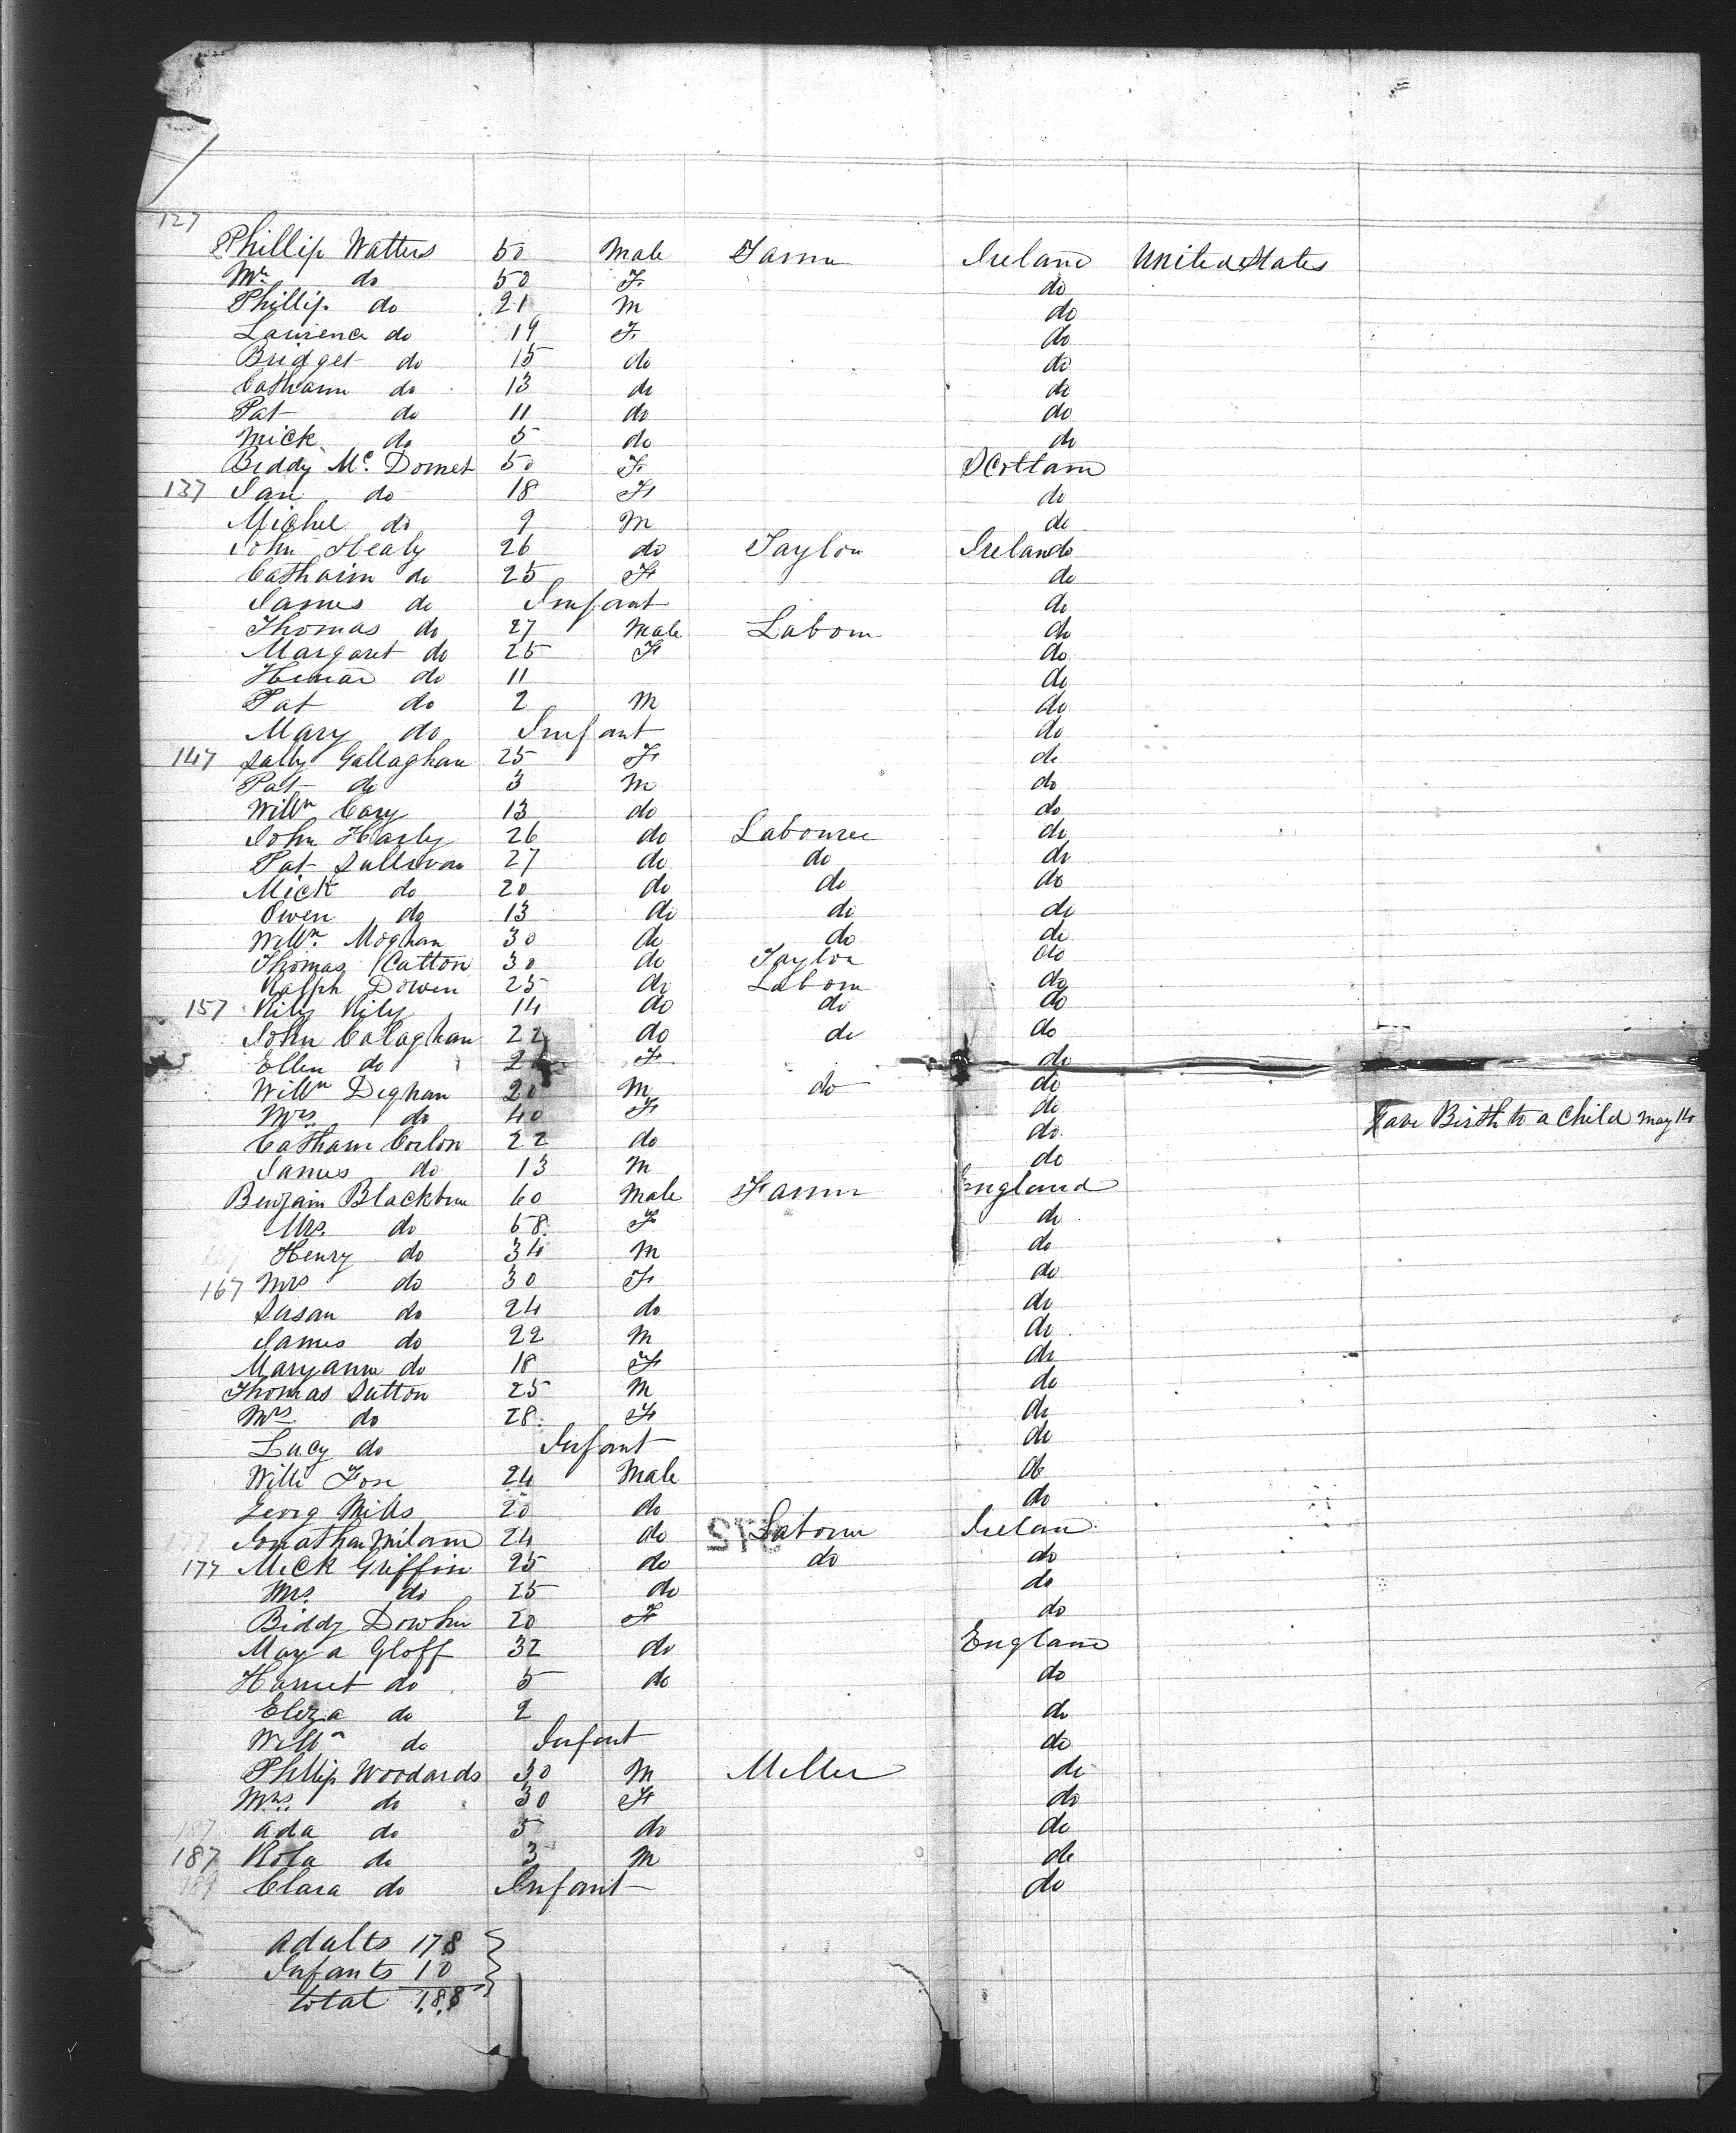 127
Phillip Watters 50 Male Farm Ireland United States
Mrs do 50 F do
Phillip do 21 M do
Laurence do 19 F do
Bridget do 15 do do
Catharn do 13 do do
Pat do 11 do do
Mick do 5 do do
Biddy Mc. Dornet 50 F Scotlan
137 Jan do 18 F do
Michel do 9 M do
John Healy 26 do Taylor Ireland do
Catharin do 25 F do
James do Infant do
Thomas do 27 Male Labour do
Margaret do 25 F do
do 11 do
Pat do 2 M do
Mary do Infant do
147 Sally Gallaghan 25 F do
Pat do 3 M do
Willm Cary 13 do do
John Harly 26 do Labourer do
Pat Sullivan 27 do do do
Mick do 20 do do do
Owen do 13 do do do
Willm Moghan 30 do do do
Thomas Catton 30 do Taylor do
Ralph Dowen 25 do Labour do
157 Rily Rily 14 do do do
John Calaghan 22 do do do
Ellen do F do
Willm Deghan 20 M do do
Mrs do 40 F do Gave Birth to a Child May 14
Catharn Conlon 22 do do
James do 13 M do
Benjain Blackburn 60 Male Farm England
Mrs. do 58 F do
Henry do 34 M do
167 Mrs do 30 F do
Susan do 24 do do
James do 22 M do
Maryann do 18 F do
Thomas Sutton 25 M do
Mrs. do 28 F do
Lucy do Infant do
Willi Fox 24 Male do
Georg Mills 20 do do
Jonathan Milam 24 do Labour Irelan
177 Mick Griffin 25 do do do
Mrs. do 25 do do
Biddy Dowhn 20 F do
Mary a Gloff 32 do England
Harriet do 5 do do
Eliza do 2 do
Willm do Infant do
Phillip Woodards 30 M Miller do
Mrs. do 30 F do
187 Ada do 5 do do
187 Rola do 3 M do
Clara do Infant do
Adults 178
Infants 10
total 188